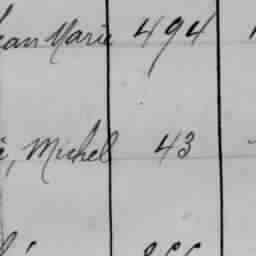 ean Marie 494
, Michel 43